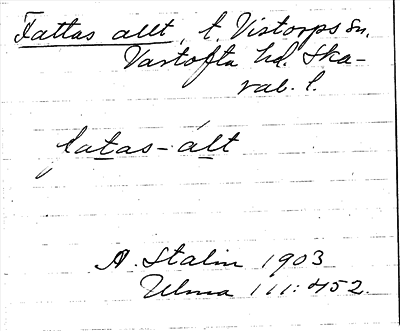 Fattas allt, t. Vistorps sn.
Vartofta hd. Ska-
rab. l.
fatas-ált
A. Stalin 1903
Ulma 111:452.